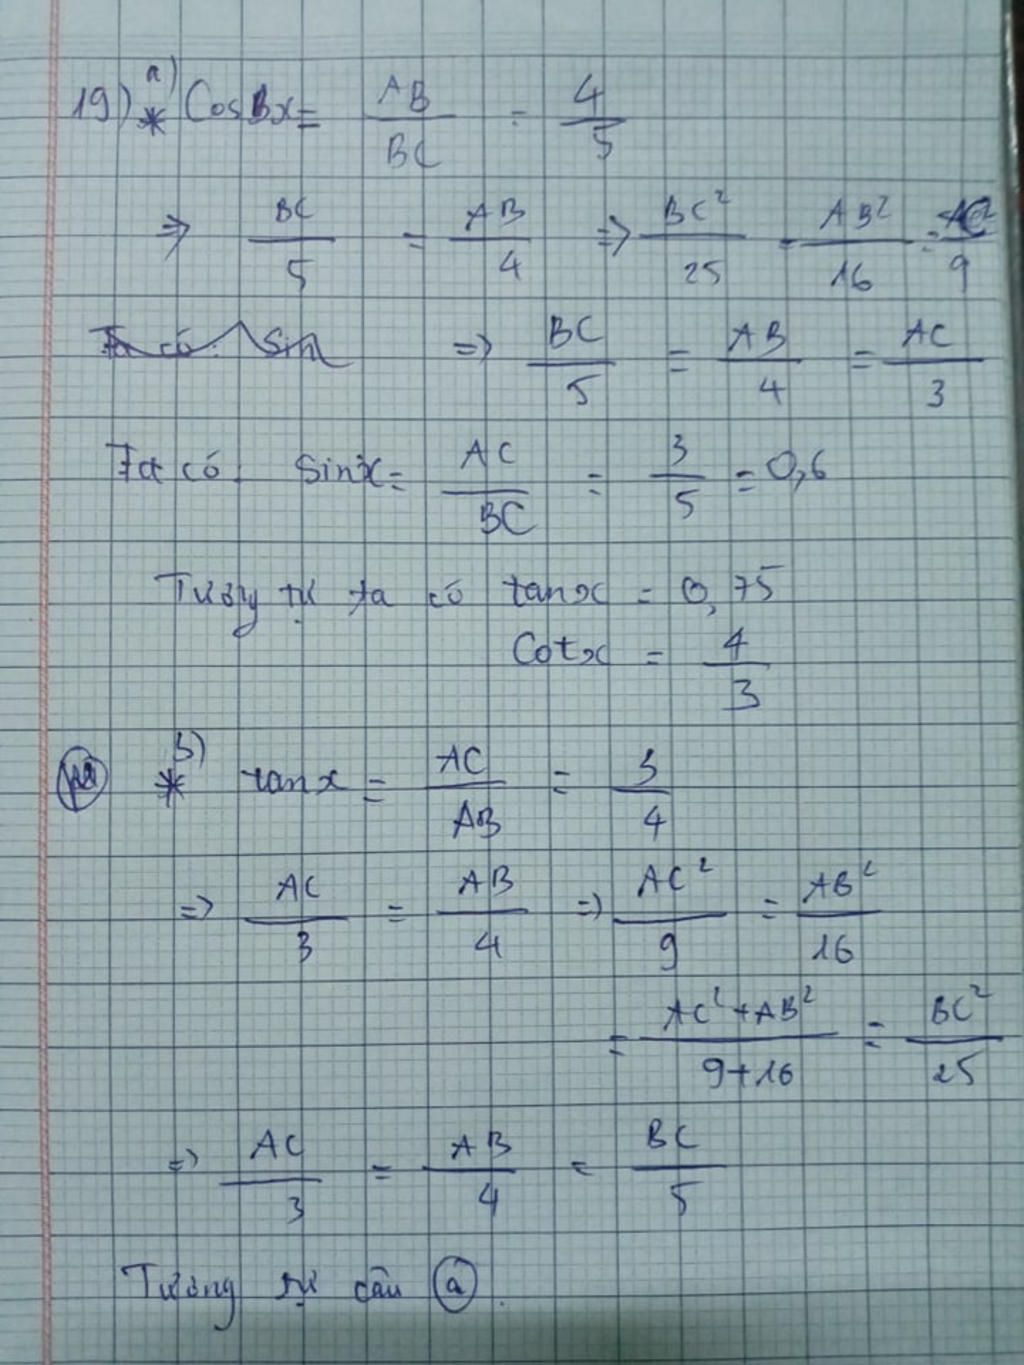 19) a) * Cos Bx = AB/BC = 4/5
=> BC/5 = AB/4 => BC²/25 = AB²/16 = AC²/9
Ta có: Sin => BC/5 = AB/4 = AC/3
Ta có: Sinx = AC/BC = 3/5 = 0,6
Tương tự ta có tanx = 0,75
Cotx = 4/3
b) * tanx = AC/AB = 3/4
=> AC/3 = AB/4 => AC²/9 = AB²/16
= AC²+AB²/9+16 = BC²/25
=> AC/3 = AB/4 = BC/5
Tương tự câu a.